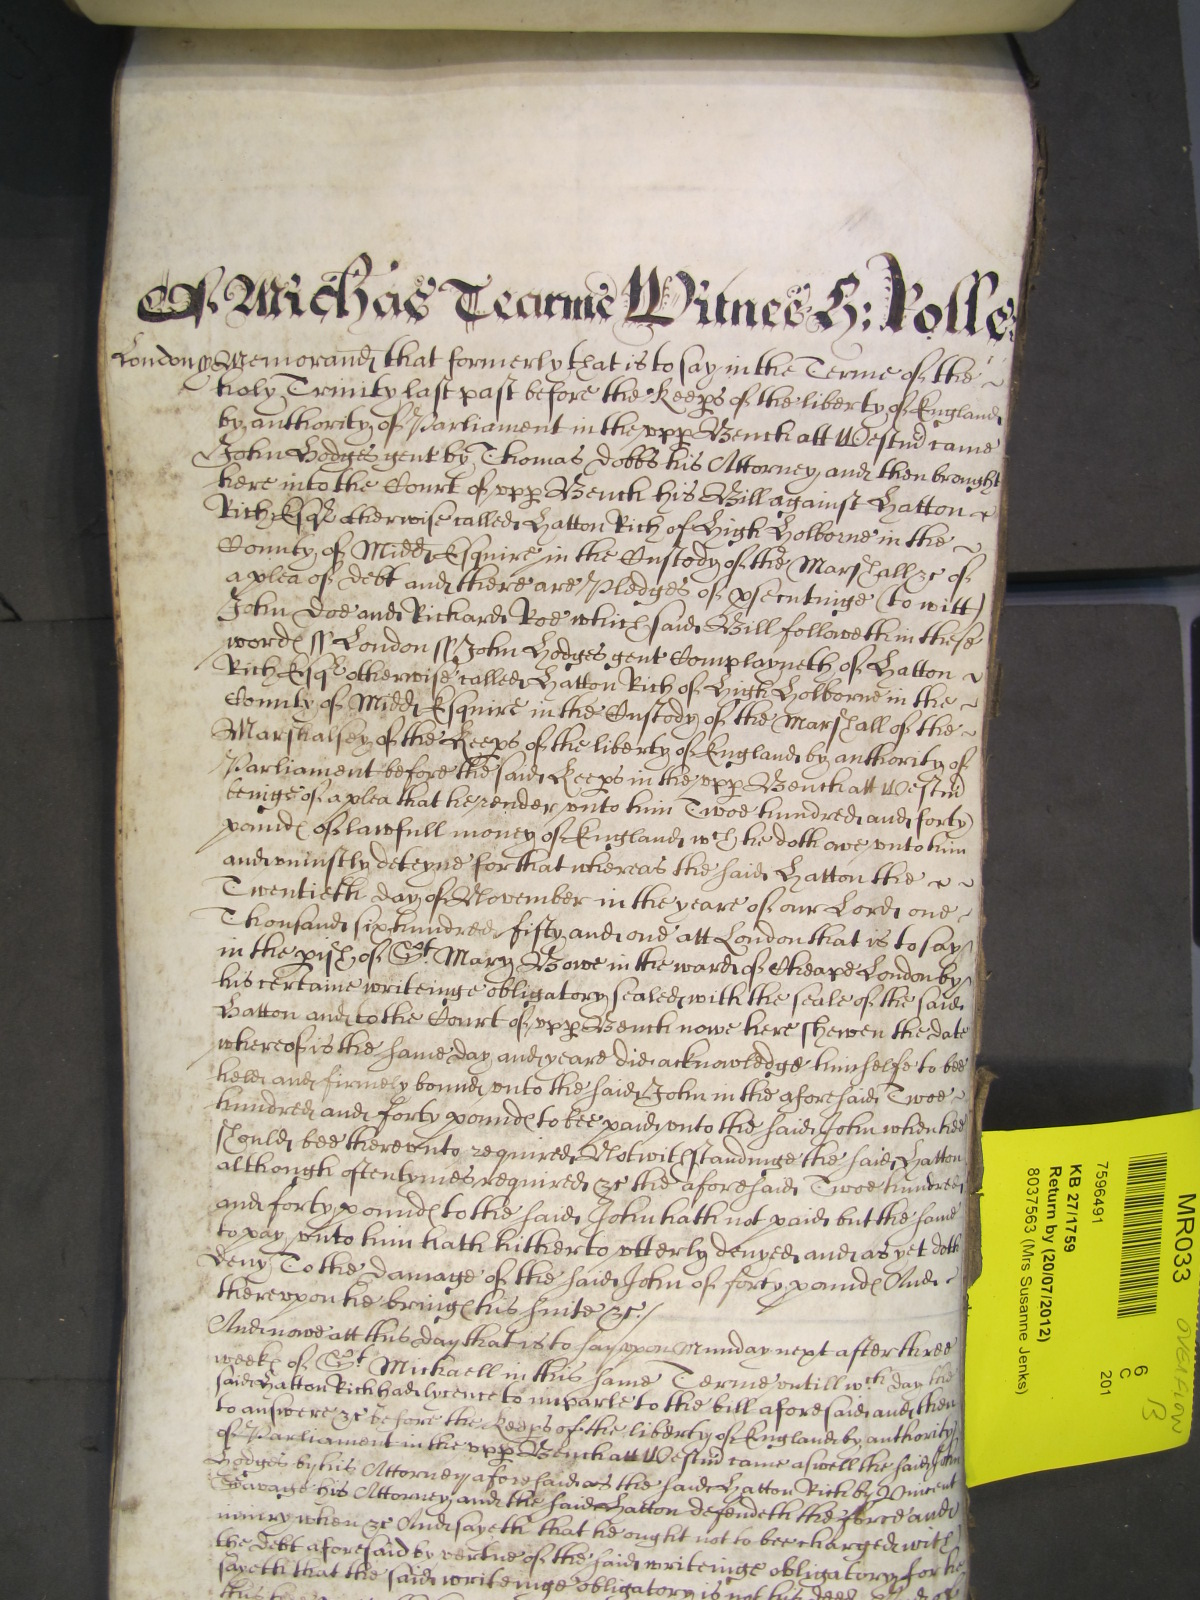 Of Michas Tearme Witnes H: Rolle
London ss Memorand that formerly that is to say in the Terme of the
holy Trinity last past before the Keeps of the liberty of England
by authority of Parliament in the upp Bench att Westm came
John Hodges gent by Thomas Dobbs his Attorney and then brought
here into the Court of upp Bench his Bill against Hatton
Rich Esq otherwise called Hatton Rich of High Holborne in the
County of Midd Esquire in the Custody of the Marshall &c of
a plea of debt and there are Pledges of psecutinge (to witt)
John Doe and Richard Roe which said Bill followeth in these
word ss London ss John Hodges gent Complayneth of Hatton
Rich Esq otherwise called Hatton Rich of High Holborne in the
County of Midd Esquire in the Custody of the Marshall of the
Marshalsey of the Keeps of the liberty of England by authority of
Parliament before the said Keeps in the upp Bench att Westm
beinge of a plea that he render unto him Twoe hundred and forty
pound of lawfull money of England wch he doth owe unto him
and uniustly deteyne for that whereas the said Hatton the
Twentieth day of November in the yeare of our Lord one
Thousand six hundred fifty and one att London that is to say
in the pish of St Mary Bowe in the ward of Cheape London by
his certaine writeinge obligatory sealed with the seale of the said
Hatton and to the Court of upp Bench nowe here shewen the date
whereof is the same day and yeare did acknowledge himselfe to bee
held and firmely bound unto the said John in the aforesaid Twoe
hundred and forty pound to bee paid unto the said John when hee
should bee thereunto required Notwithstandinge the said Hatton
although oftentymes required &c the aforesaid Twoe hundred
and forty pound to the said John hath not paid but the same
to pay unto him hath hitherto utterly denyed and as yet doth
deny To the damage of the said John of forty pound And
thereuppon he bring his suite &c /
And nowe att this day that is to say upon Munday next after three
week of St Michaell in this same Terme untill wch day the
said Hatton Rich had lycence to imparle to the bill aforesaid and then
to answere &c before the Keeps of the liberty of England by authority
of Parliament in the upp Bench att Westm came aswell the said John
Hodges by his Attorney aforesaid as the said Hatton Rich by Vincent
his Attorney and the said Hatton defendeth the force and
iniury when &c And sayeth that he ought not to bee charged with
the debt aforesaid by vertue of the said writeinge obligatory for he
sayeth that the said writeinge obligatory is not his deed And of
MR033
OVERSION
13
6
C
201
7596491
KB 27/1759
Return by (20/07/2012)
8037563 (Mrs Susanne Jenks)